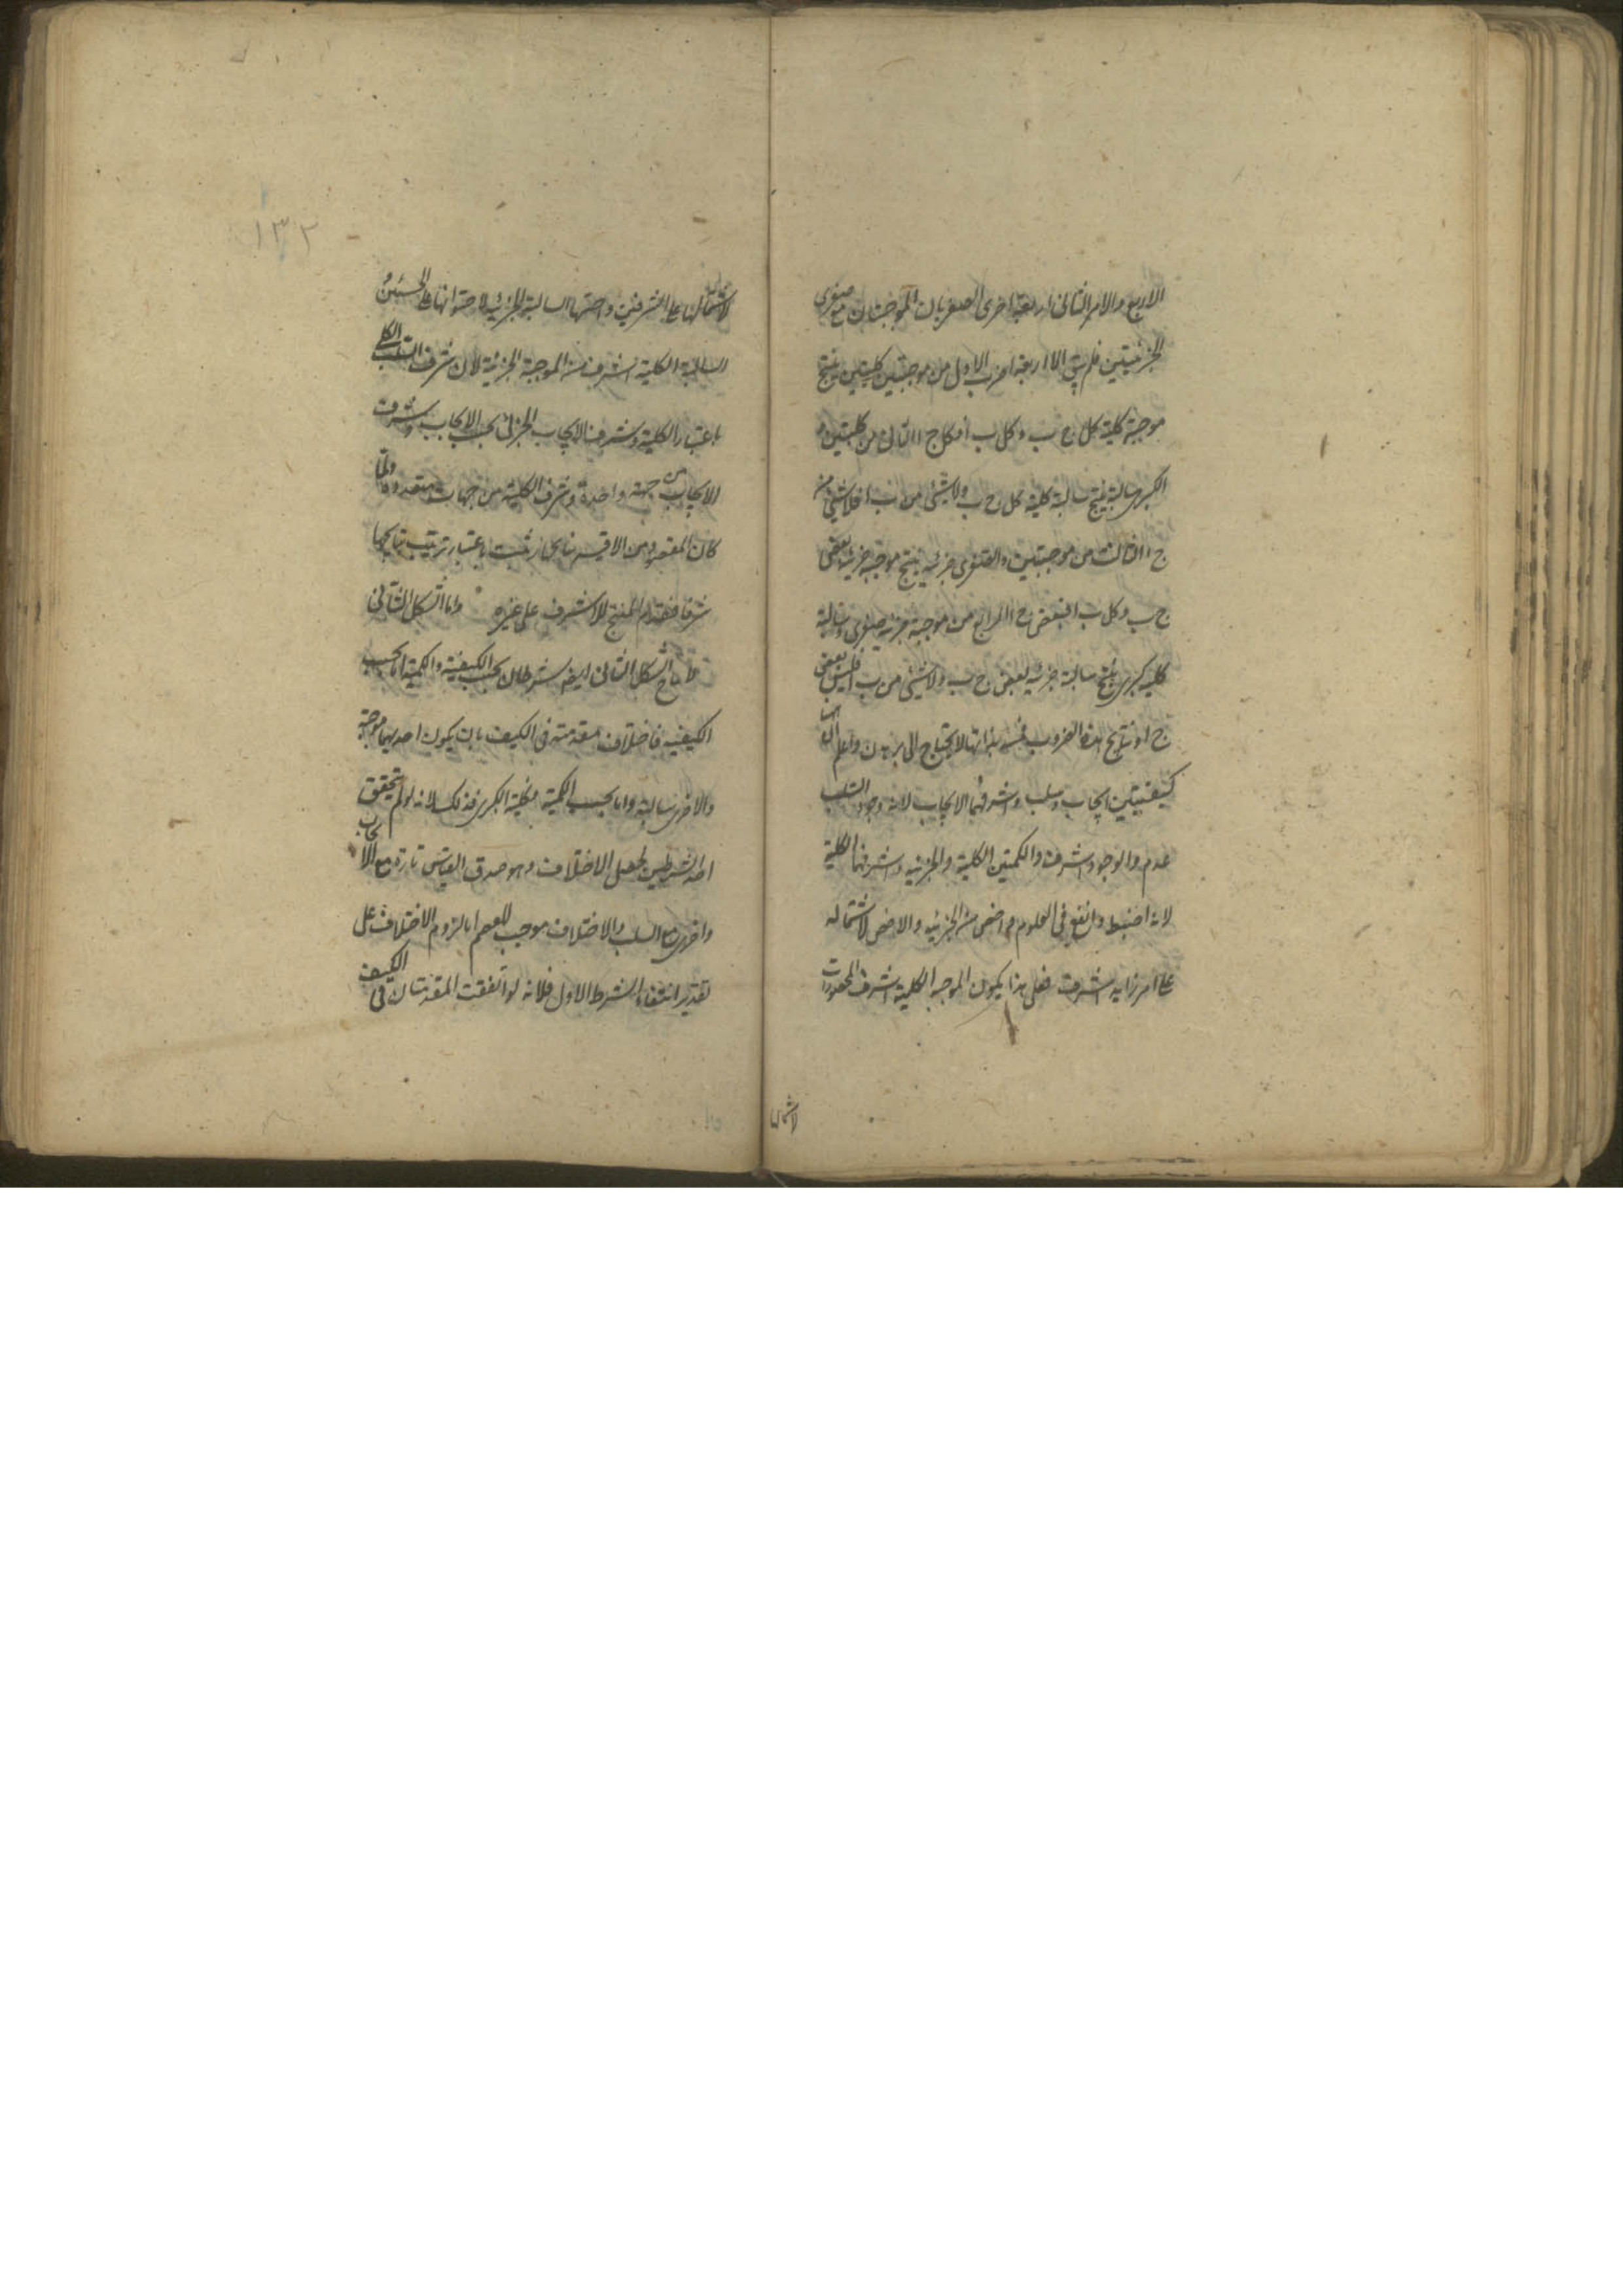 الاربع والامر الثاني اربعة اخرى الصغريان الموجبتان مع صغرى
الجزئيتين فلم يبق الا اربعة اضرب الاول من موجبتين كليتين ينتج
موجبة كلية كل ج ب وكل ب ا فكل ج ا الثاني من كليتين و
الكبرى سالبة ينتج سالبة كلية كل ج ب ولا شئ من ب ا فلا شئ من
ج ا الثالث من موجبتين والصغرى جزئية ينتج موجبة جزئية بعض
ج ب وكل ب ا فبعض ج ا الرابع من موجبة جزئية صغرى وسالبة
كلية كبرى ينتج سالبة جزئية بعض ج ب ولا شئ من ب ا فليس بعض
ج ا ونتايج هذه الضروب بينة بذاتها لا تحتاج الى برهان واعلم ان ههنا
كيفيتين ايجاب وسلب واشرفهما الايجاب لانه وجود والسلب
عدم والوجود اشرف والكميتين الكلية والجزئية واشرفهما الكلية
لانه اضبط وانفع في العلوم واخص من الجزئية والاخص لاشتماله
على امر زايد اشرف فعلى هذا يكون الموجبة الكلية اشرف المحصورات
لاشتمالها
١٣٢
لاشتمالها على الشرفين واخسها السالبة الجزئية لاحتوائها على الخستين و
السالبة الكلية اشرف من الموجبة الجزئية لان شرف السلب الكلي
باعتبار الكلية وشرف الايجاب الجزئي بحسب الايجاب وشرف
الايجاب من جهة واحدة وشرف الكلية من جهات متعددة ولما
كان المقصود من الاقيسة نتايجها رتبت باعتبار ترتيب نتايجها
شرفا فقدم المنتج للاشرف على غيره واما الشكل الثاني
لانتاج الشكل الثاني ايضا شرطان بحسب الكيفية والكمية اما بحسب
الكيفية فاختلاف مقدمتيه في الكيف بان يكون احديهما موجبة
والاخرى سالبة واما بحسب الكمية فكلية الكبرى وذلك لانه لو لم يتحقق
احد الشرطين لحصل الاختلاف وهو صدق القياس تارة مع الايجاب
واخرى مع السلب والاختلاف موجب للعقم اما لزوم الاختلاف على
تقدير انتفاء الشرط الاول فلانه لو اتفقت المقدمتان في الكيف